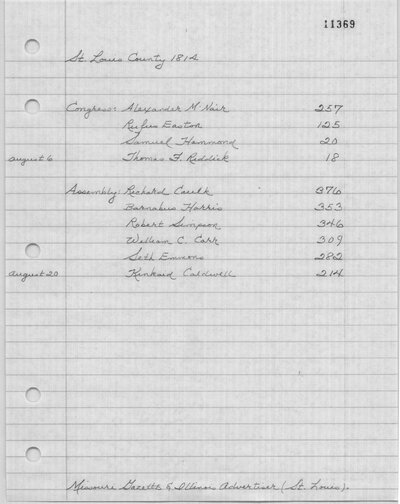 11369
St. Louis County 1814
Congress: Alexander McNair 257
Rufus Easton 125
Samuel Hammond 20
August 6 Thomas F. Riddick 18
Assembly: Richard Caulk 376
Barnabus Harris 353
Robert Simpson 346
William C. Carr 309
Seth Emmons 282
August 20 Kinkaid Caldwell 214
Missouri Gazette & Illinois Advertiser (St. Louis).